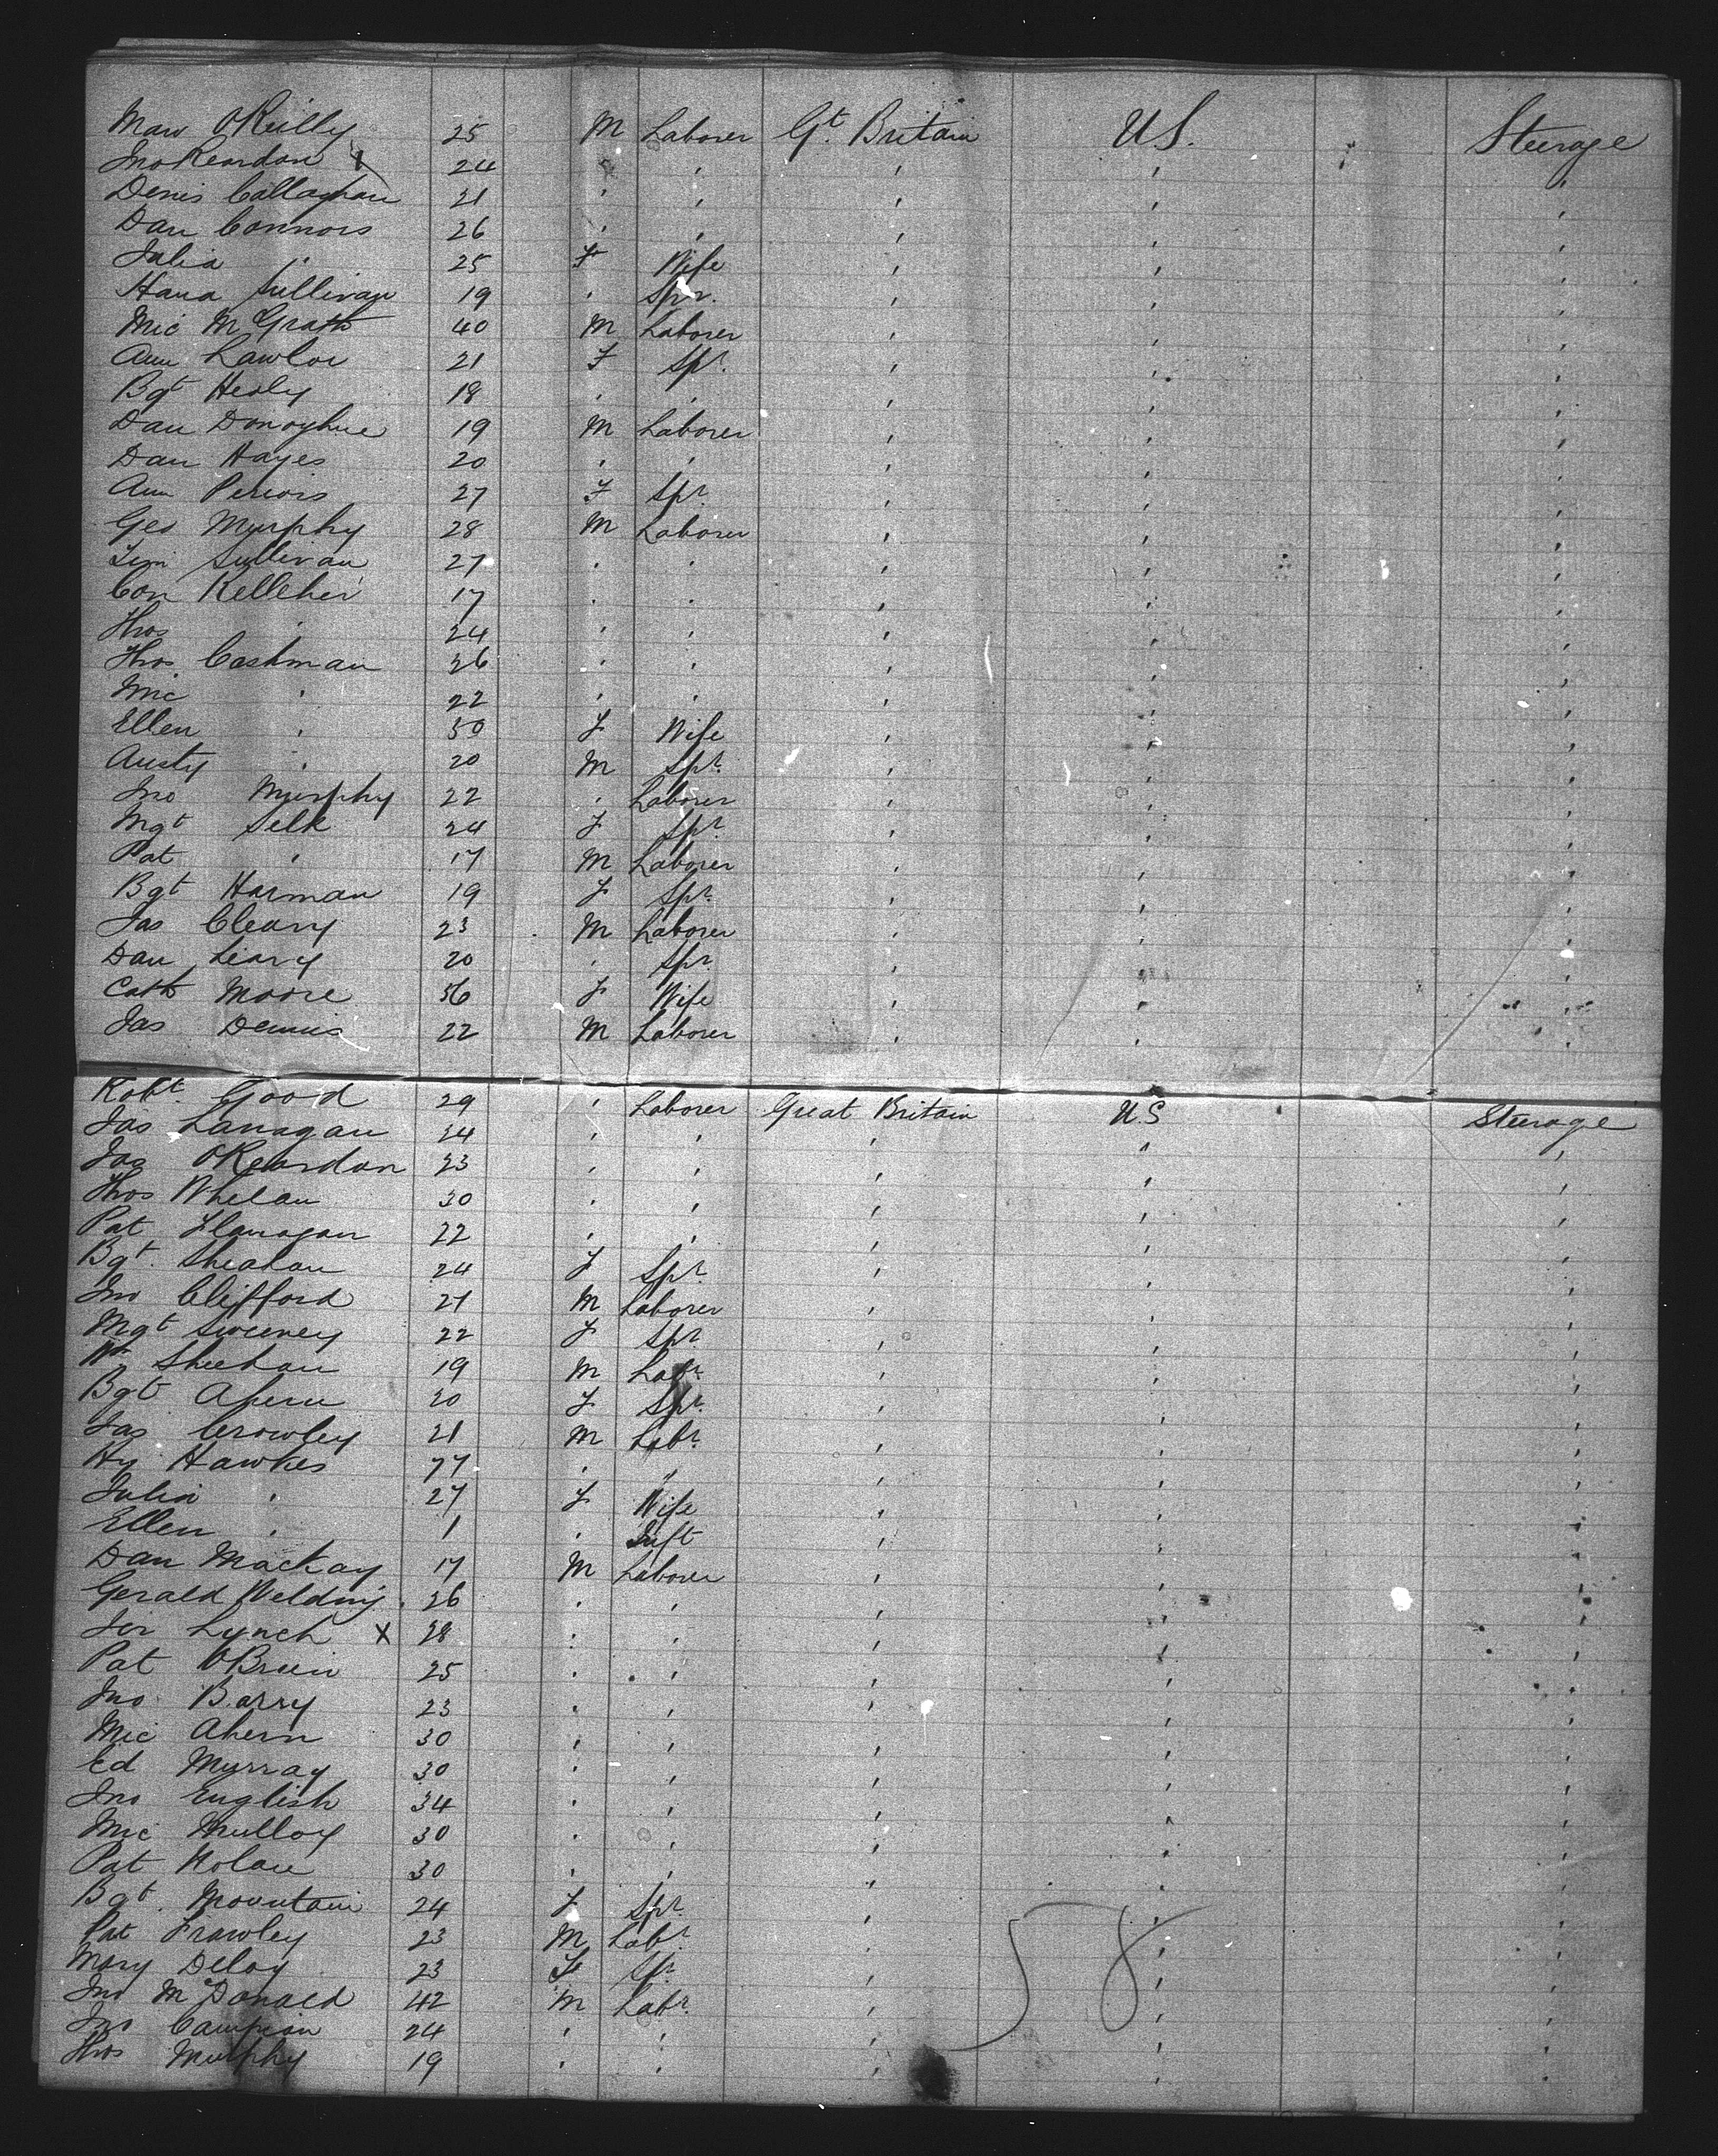 Maw OReilly 25 M Laborer Gt. Britain U.S. Steerage
Jno Reardon X 24 " " " " "
Denis Callaghan 21 " " " " "
Dan Connors 26 " " " " "
Julia " 25 F Wife " " "
Hana Sullivan 19 " Spr. " " "
Mic McGrath 40 M Laborer " " "
Ann Lawlor 21 F Spr. " " "
Bgt Healy 18 " " " " "
Dan Donoghue 19 M Laborer " " "
Dan Hayes 20 " " " " "
Ann 27 F Spr. " " "
Geo Murphy 28 M Laborer " " "
Tim Sullivan 27 " " " " "
Con Kelleher 17 " " " " "
Thos " 24 " " " " "
Thos Cashman 26 " " " " "
Mic " 22 " " " " "
Ellen " 30 F Wife " " "
Austy " 20 M Spr. " " "
Jno Murphy 22 " Laborer " " "
Mgt Silk 24 F Spr. " " "
Pat " 17 M Laborer " " "
Bgt Harman 19 F Spr. " " "
Jas Cleary 23 M Laborer " " "
Dan Leary 20 " Spr. " " "
Cath Moore 36 F Wife " " "
Jas Dennis 22 M Laborer " " "
Robt. Good 29 " Laborer Great Britain U.S Steerage
Jas Lanagan 24 " " " " "
Jas OReardon 23 " " " " "
Thos Whelan 30 " " " " "
Pat Flanagan 22 " " " " "
Bgt. Sheahan 24 F Spr. " " "
Jno Clifford 21 M Laborer " " "
Mgt Sweeney 22 F Spr. " " "
Wm Sheehan 19 M Labr. " " "
Bgt Ahern 20 F Spr. " " "
Jas Crowley 21 M Labr. " " "
Hy Hawkes 77 " " " " "
Julia " 27 F Wife " " "
Ellen " 1 " Inft " " "
Dan Mackay 17 M Laborer " " "
Gerald Welding 26 " " " " "
Jer Lynch X 28 " " " " "
Pat OBrien 25 " " " " "
Jno Barry 23 " " " " "
Mic Ahern 30 " " " " "
Ed Murray 30 " " " " "
Jno English 34 " " " " "
Mic Mulloy 30 " " " " "
Pat Nolan 30 " " " " "
Bgt. Mountain 24 F Spr. " " "
Pat Frawley 23 M Labr. " " "
Mary Deloy 23 F Spr. " " "
Jno McDonald 42 M Labr. " " "
Jno Campion 24 " " " " "
Thos Murphy 19 " " " " "
58